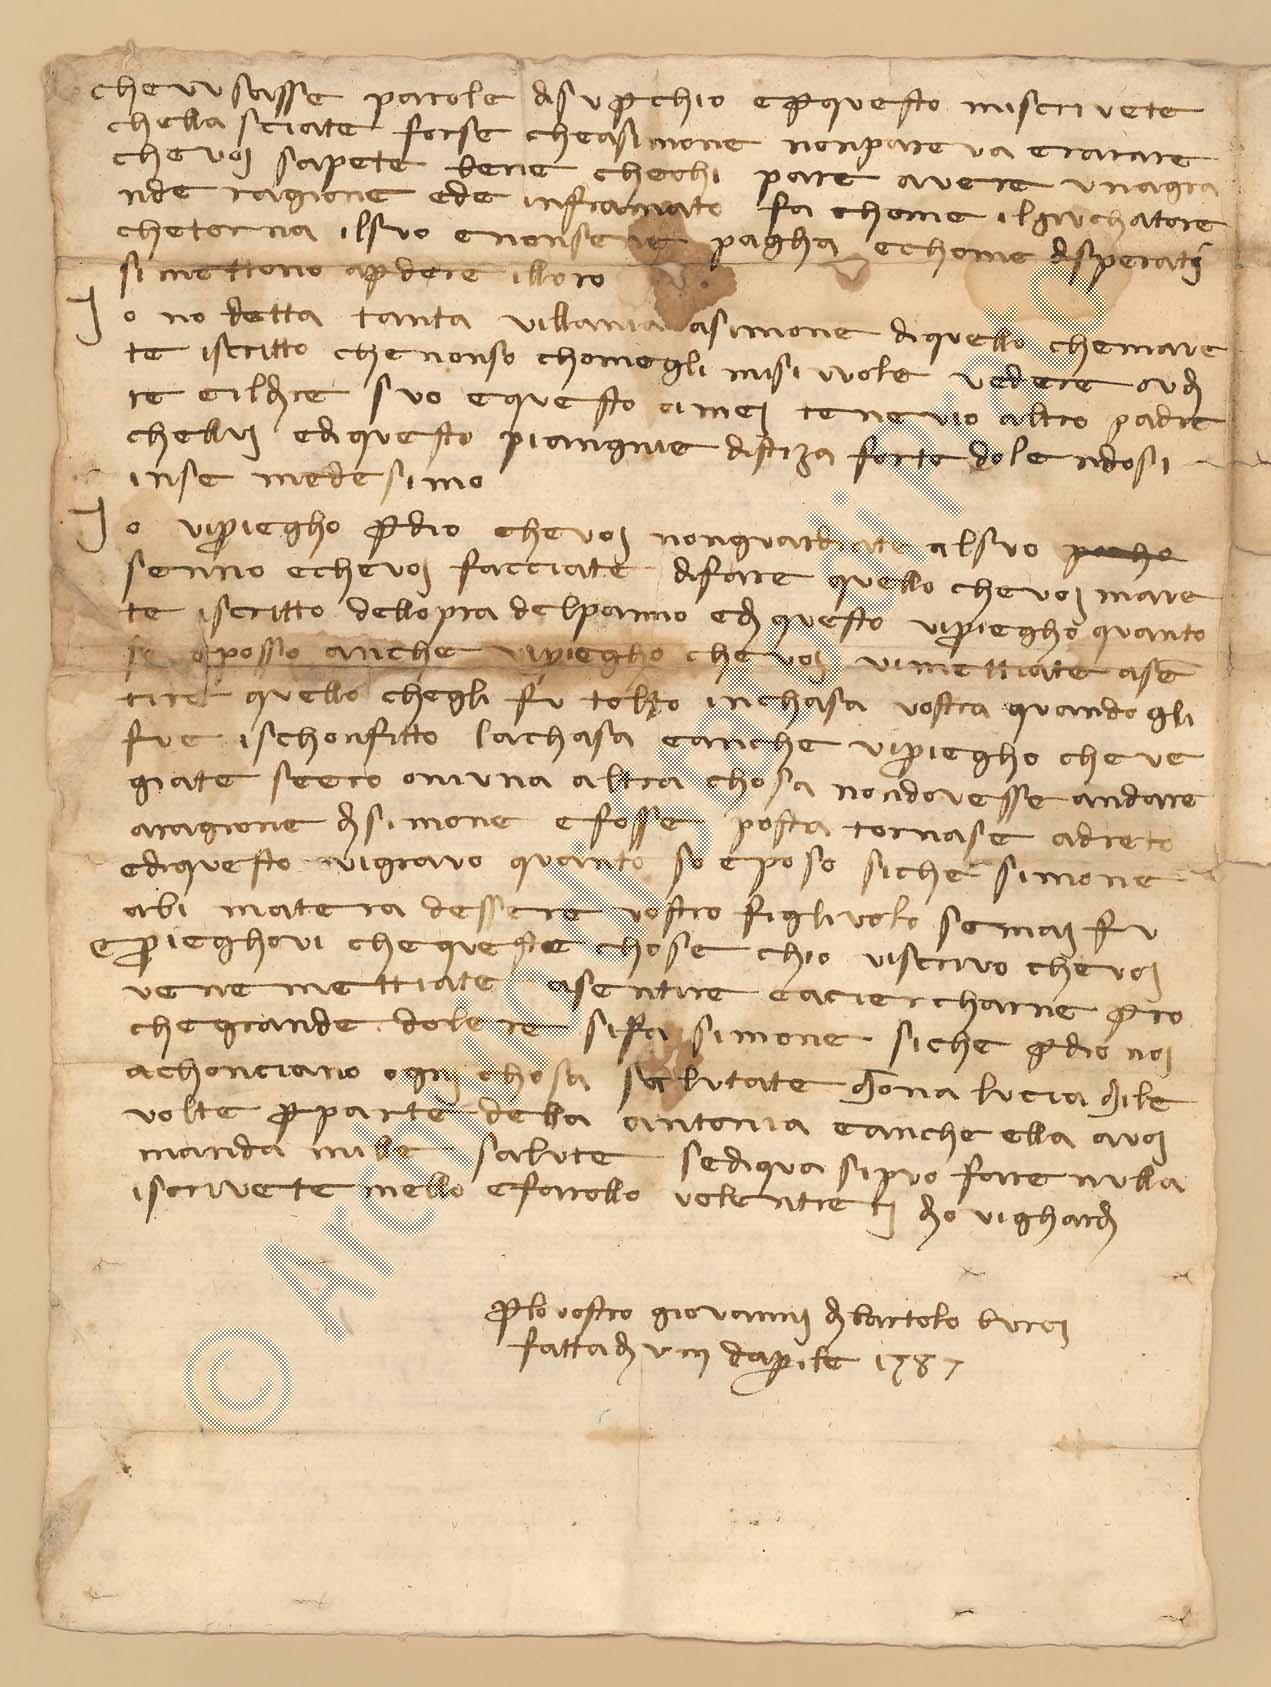 che vvsasse parole di sup̱chio e p̱questo miscrivete
chella sciate forse cheasimone nonpareva erarare
chevoj sapete bene chechi pare avere vnagra
nde ragione ede infiamato fa chome ilgiuchatore
chetorna ilsvo enonsene pagha echome disperatj
simettono ap̱dere illoro
Jo no detta tanta villania asimone diquello chemave
te iscritto che nonso chomegli misi wole vedere avdj
re eildire svo equesto aimej tenevio altro padre
chelluj ediquesto piangnie distiza forte dolendosi
inse medesimo
Jo vip̱iegho p̱dio chevoj nonguardiate alsvo pocho
senno echevoj facciate difare quello chevoj mave
te iscritto dellopra delpanno edj questo vip̱iegho quanto
so e posso anche vipiegho chevoj vimettiate asē
tire quello chegli fu tolto inchasa vostra quandogli
fue ischonfitto lachasa eanche vip̱iegho cheve
giate seero oniuna altra chosa nondovesse andare
aragione dj simone efosse posta tornase adreto
ediquesto vigravo quanto so eposo siche simone
abi matera dessere vostro figlivolo semaj fu
ep̱ieghovi chequeste chose chio viscrivo chevoj
venemettiate asentire eacierchare p̱ro
chegrande dolere sifa simone siche p̱dio noj
achonciano ognj chosa salutate mona lucia mile
volte p̱parte della antonia eanche ella avoj
manda mille salute sediqua sipuo fare nulla
iscrivetemello efarollo volentierj dio vighardj
p̱lovostro giovannj dj bartolo buroj
fattadj viij dap̱ile 1387